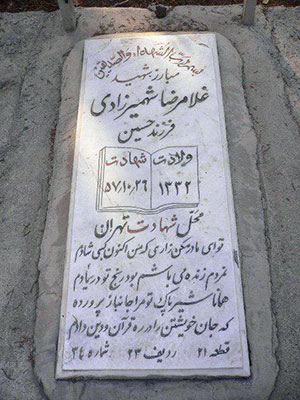 بسم رب الشهداء والصدیقین
مبارز شهید
غلامرضا شهمیرزادی
فرزند حسین
ولادت شهادت
۱۳۳۲ ۵۷/۱۰/۲۶
محل شهادت تهران
تو ای مادر مکن زاری که من اکنون کسی شادم
نمردم زنده می باشم بود رنج تو در یادم
همانا شیر پاک تو مرا جانباز پرورده
که جان خویشتن را در ره قرآن و دین دادم
قطعه ۲۱ ردیف ۲۳ شماره ۳۴